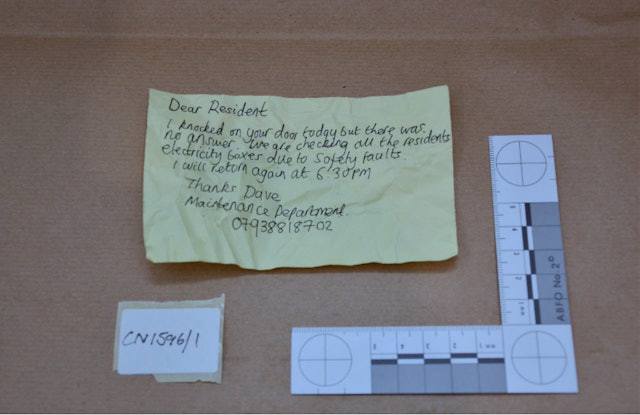 Dear Resident
I knocked on your door today but there was
no answer. We are checking all the residents
electricity boxes due to safety faults.
I will return again at 6:30pm
Thanks Dave
Maintenance Department.
07938818702
CN1596/1
ABFO No. 2